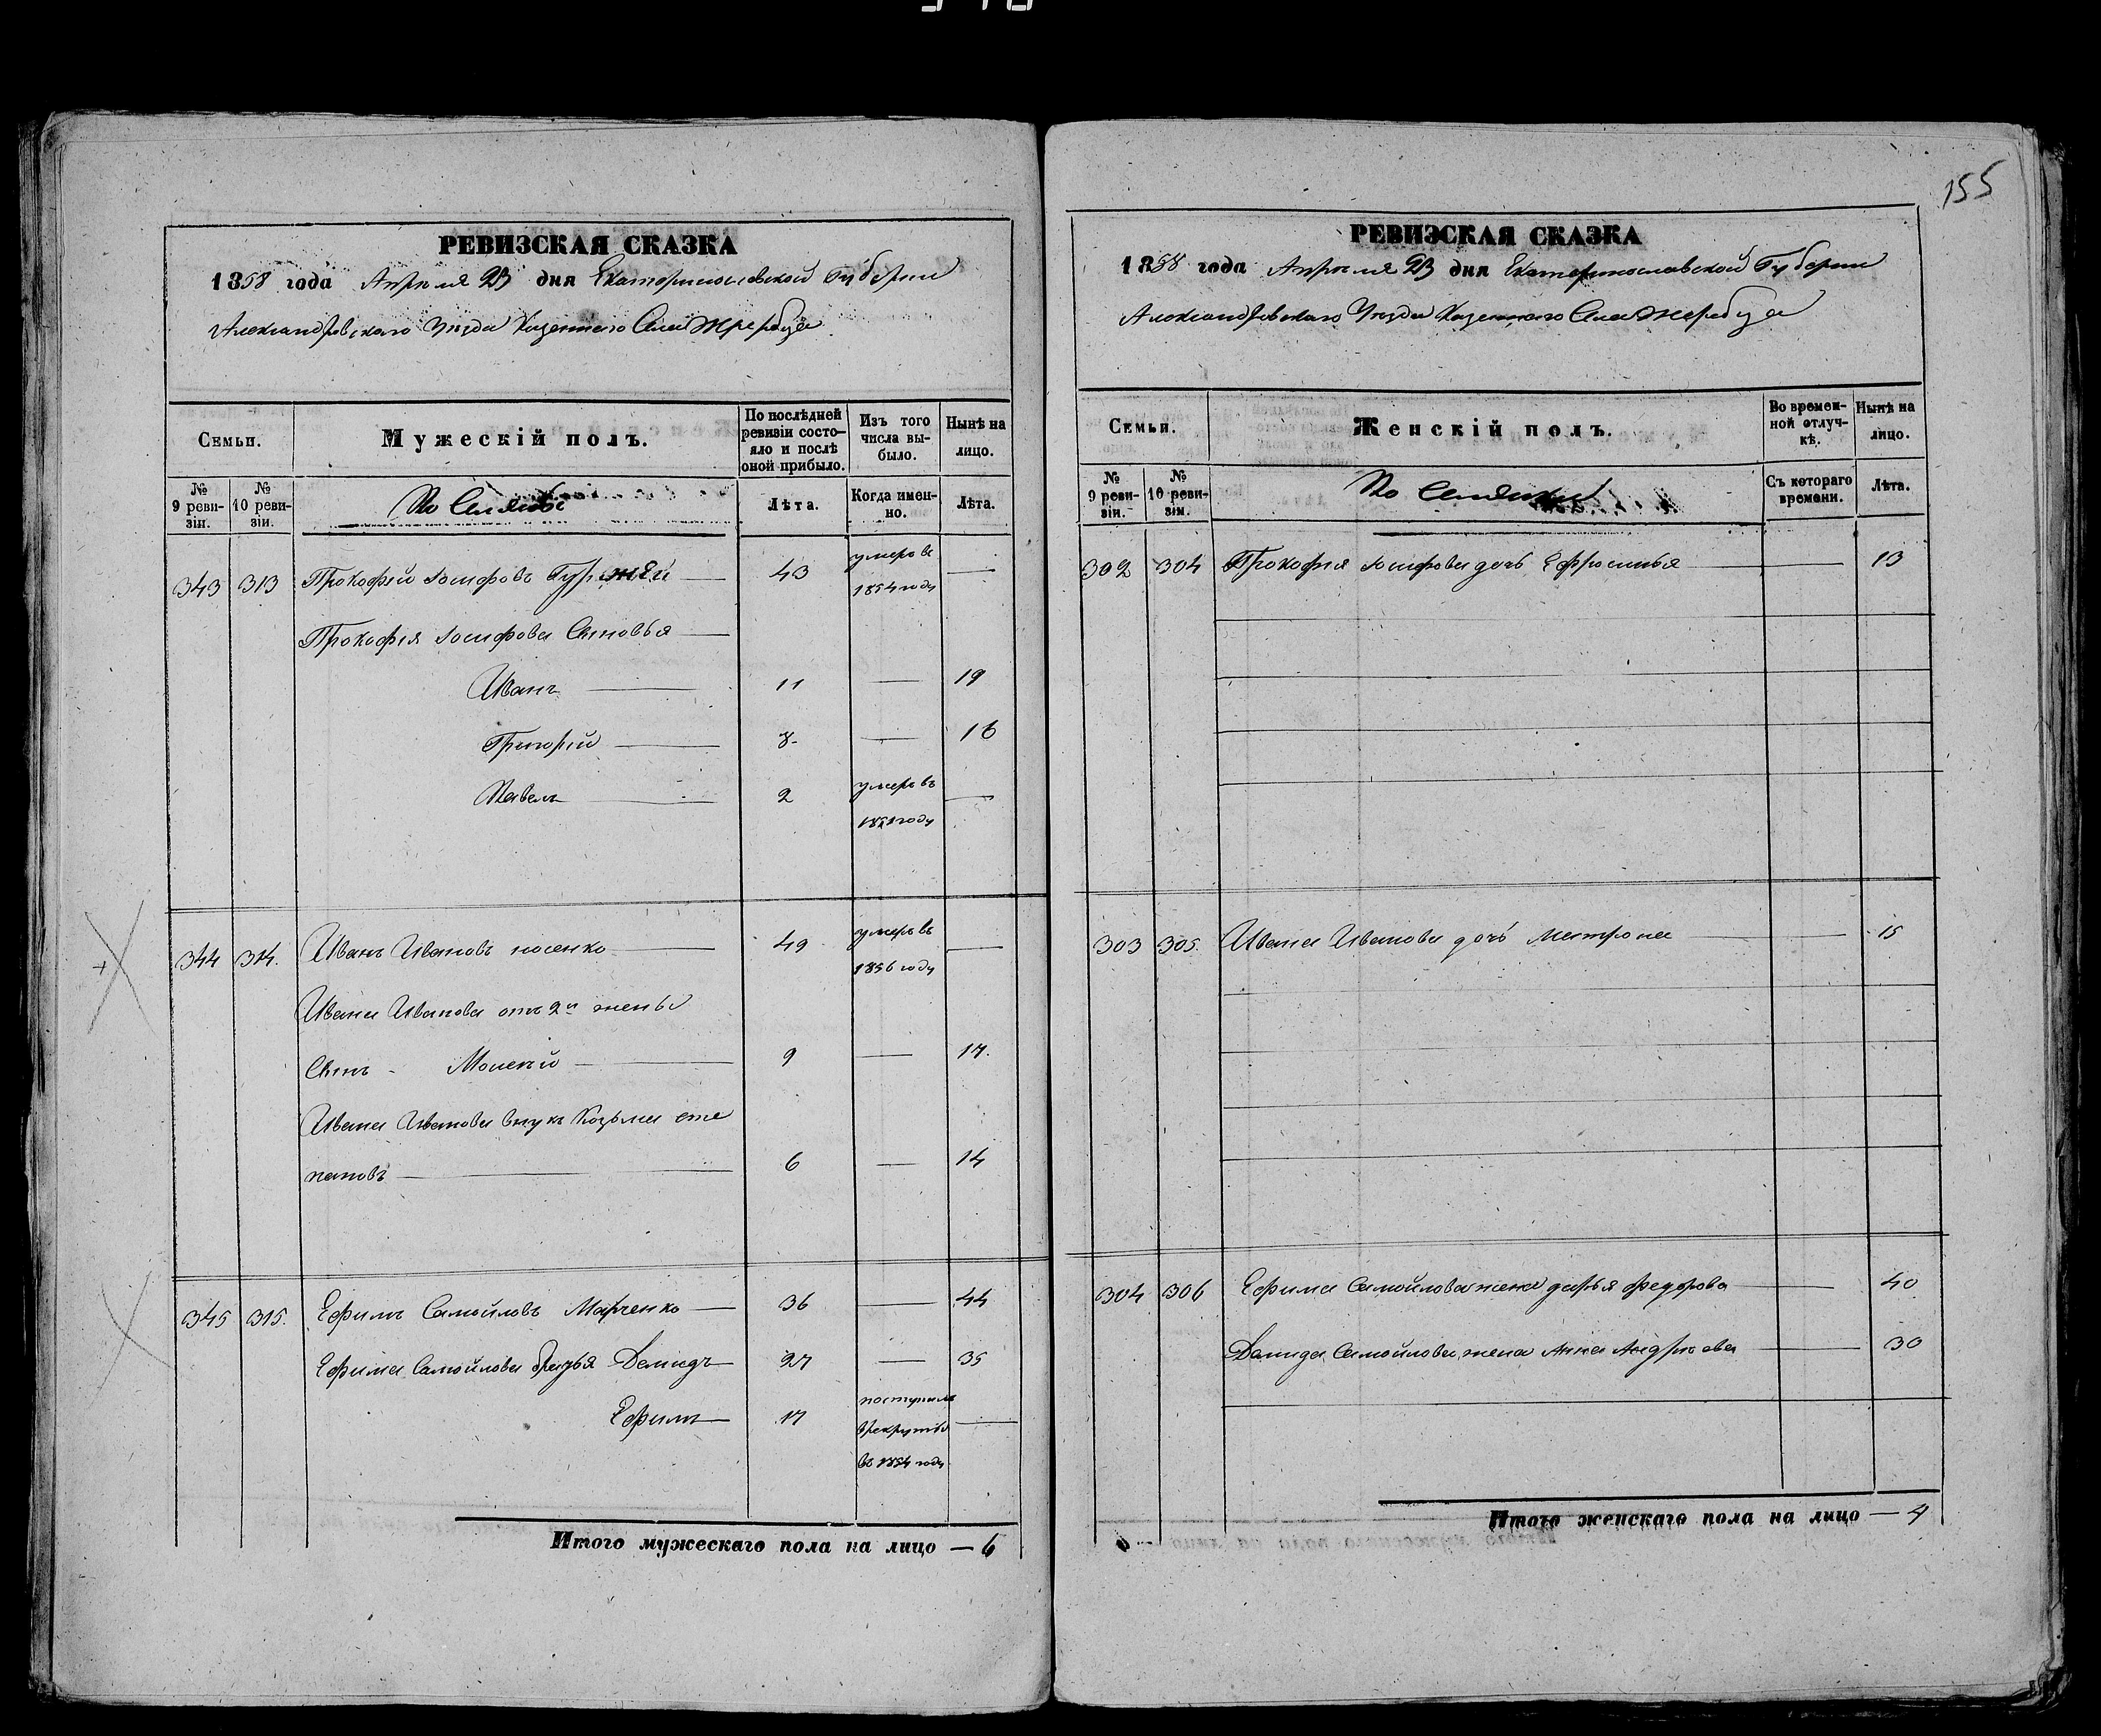 155
РЕВИЗСКАЯ СКАЗКА
1858 года Апреля 23 дня Екатеринославской Губерніи
Александровскаго Уезда Казеннаго Села Жеребца
Семьи.
Мужескій полъ.
По послѣдней ревизіи состо-
яло и послѣ
оной прибыло.
Изъ того
числа вы-
было.
Нынѣ на
лицо.
№
9 реви-
зіи.
№
10 реви-
зіи.
Лѣта.
Когда имен-
но.
Лѣта.
343 313 Прокофій Іосифовъ 43 умеръ въ 1854 году —
Прокофія Іосифова Сыновья
Иванъ 11 — 19
Григорій 8 — 16
Павелъ 2 умеръ въ —
1851 году
344 314. Иванъ Ивановъ носенко 49 умеръ въ 1856 году —
Ивана Ивanова отъ 2й жены
Сынъ - Мокей 9 — 17.
Ивана Иванова внукъ Козьма сте
пановъ 6 — 14
345 315. Ефимъ Самойловъ Марченко 36 — 44
Ефима Самойлова братья Демидъ 27 — 35
Ефимъ 17 поступилъ
в рекруты
въ 1854 году —
Итого мужескаго пола на лицо — 6
РЕВИЗСКАЯ СКАЗКА
1858 года Апреля 23 дня Екатеринославской Губерніи
Александровскаго Уезда Казеннаго Села Жеребца
Семьи.
Женскій полъ.
Во времен-
ной отлуч-
кѣ.
Нынѣ на
лицо.
№
9 реви-
зіи.
№
10 реви-
зіи.
Съ котораго
времени.
Лѣта.
302 304 Прокофія Іосифова дочь Ефросинья — 13
303 305. Ивана Иванова дочь Матрона — 15
304 306 Ефима Самойлова жена дарья федорова — 40
Демида Самойлова жена Анна Андреева — 30
Итого женскаго пола на лицо — 4